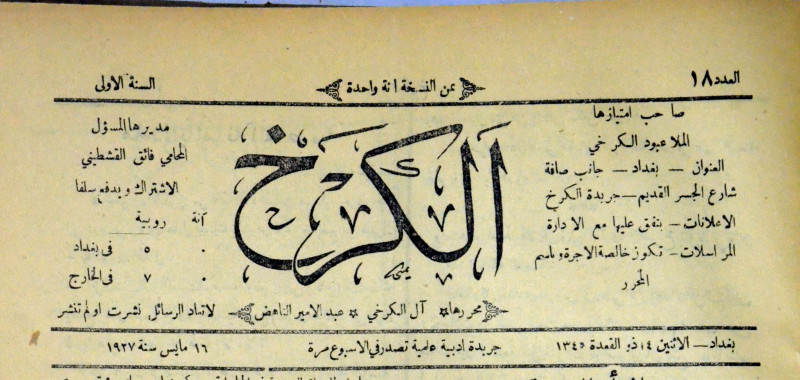 العدد ١٨
ثمن النسخة آنة واحدة
السنة الاولى
صاحب امتيازها
الملا عبود الكرخي
العنوان — بغداد — جانب
شارع الجسر القديم — جريدة الكرخ
الاعلانات — يتفق عليها مع الادارة
المراسلات — تكون خالصة الاجرة باسم
المحرر
الكرخ
مديرها المسؤل
المحامي فائق القشطيني
الاشتراك ويدفع سلفا
آنة روبية
٠ ٥ في بغداد
٠ ٧ في الخارج
محررها آل الكرخي * عبد الامير الناهض
لاتعاد الرسائل نشرت او لم تنشر
بغداد — الاثنين ١٤ ذو القعدة ١٣٤٥
جريدة ادبية علمية تصدر في الاسبوع مرة
١٦ مايس سنة ١٩٢٧